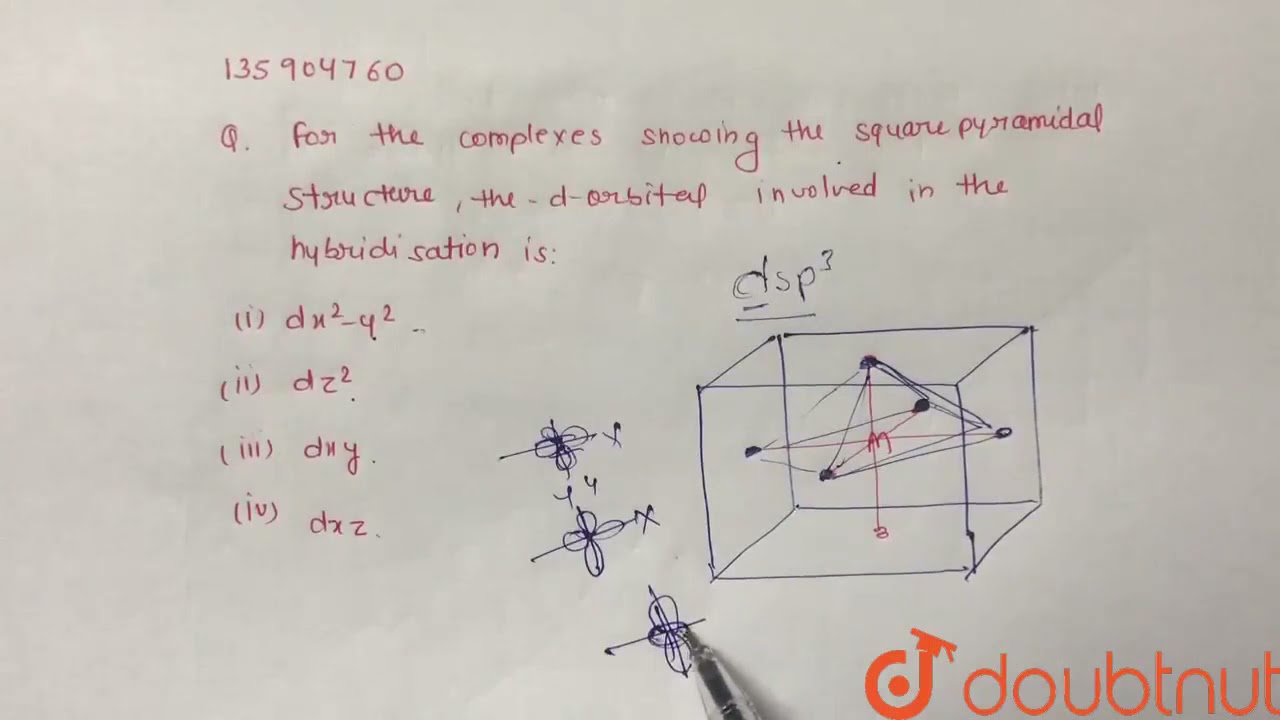 135904760
Q. For the complexes showing the square pyramidal
structure, the -d-orbital involved in the
hybridisation is:
dsp³
(i) dx²-y²
(ii) dz².
(iii) dxy.
(iv) dxz.
X
Y
X
M
doubtnut